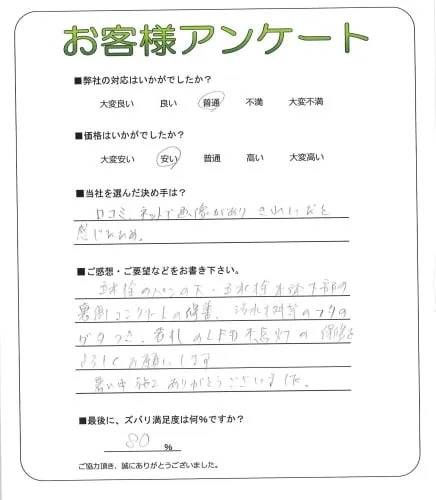 お客様アンケート
■弊社の対応はいかがでしたか？
大変良い 良い 普通 不満 大変不満
■価格はいかがでしたか？
大変安い 安い 普通 高い 大変高い
■当社を選んだ決め手は？
口コミ、ネットで画像があり きれいだと
感じたため。
■ご感想・ご要望などをお書き下さい。
立水栓の 立水栓 下部の
裏側コンクリートの修善、汚水 枡等のフタの
ガタつき、表札のLED不点灯の 保修を
よろしくお願いします
暑い中施工ありがとうございました。
■最後に、ズバリ満足度は何%ですか？
80 %
ご協力頂き、誠にありがとうございました。